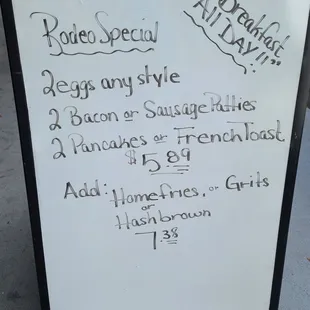 Rodeo Special
Breakfast
All DAY!!
2 eggs any style
2 Bacon or Sausage Patties
2 Pancakes or French Toast
$5.89
Add: Homefries, or Grits
or
Hashbrown
7.38